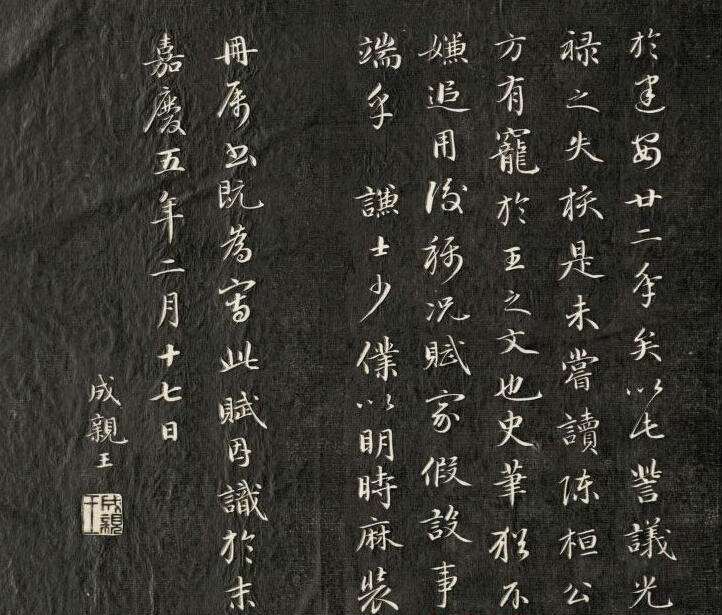 於建安廿二年矣以此訾議光
祿之失核是未嘗讀陳桓公
方有寵於王之文也史筆猶不
嫌追用後稱況賦家假設事
端乎 謙士少僕以明時麻裝
冊屬書既為寫此賦因識於末
嘉慶五年二月十七日
成親王
成親王